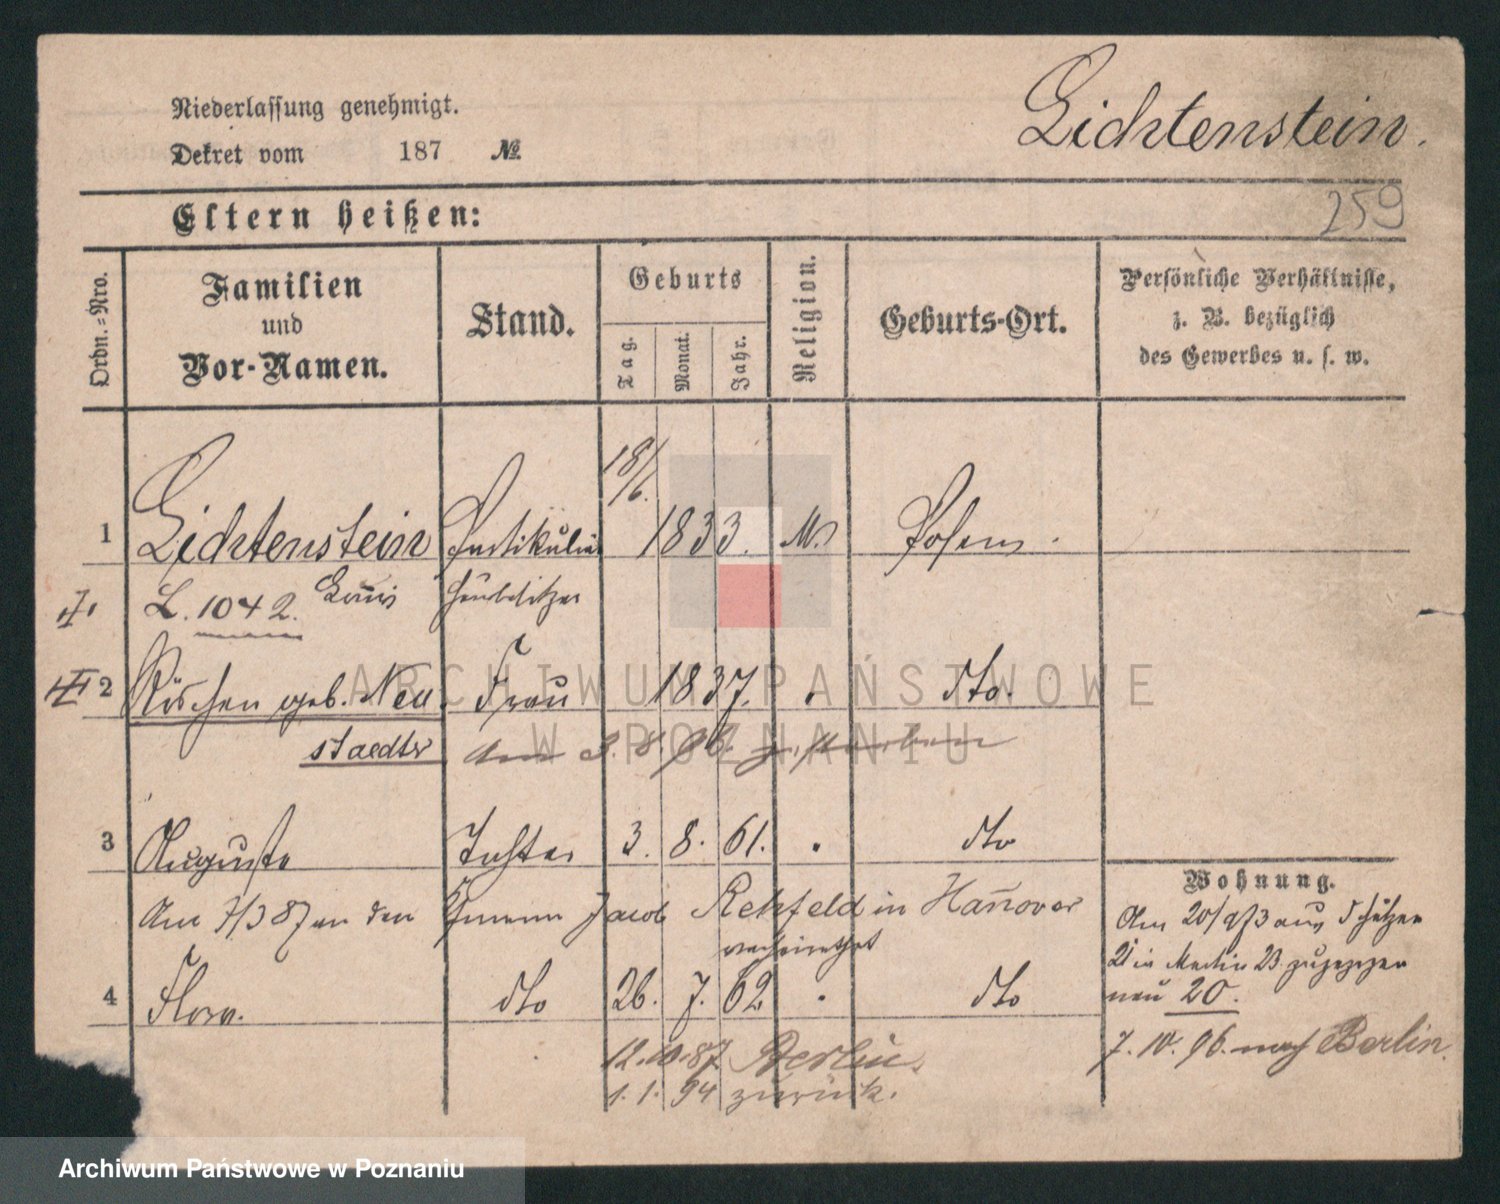 Niederlassung genehmigt.
Lichtenstein.
Dekret vom 187 №
Eltern heißen:
259
Ordn.-Nro.
Familien und Vor-Namen.
Stand.
Geburts
Tag.
Monat.
Jahr.
Religion.
Geburts-Ort.
Persönliche Verhältnisse,
z. B. bezüglich
des Gewerbes u. s. w.
18/6.
1 Lichtenstein Partikulier 1833. M. Posen.
I. L. 1042. Louis Hausbesitzer
II 2 Röschen geb. Neu Frau 1837. . dto.
staedter am 3. 8. 96. gestorben
3 Auguste Tochter 3. 8. 61. . dto
Am 7/3 87 an den Kfmann Jacob Rehfeld in Hannover
verheirathet
4 Flora. dto 26. 7. 62 . dto
12.10.87 Berlin.
1. 1. 94 zurück.
Wohnung.
Am 20/ 73 aus Schützen
21 in Martin 23 zugezogen
neu 20.
7. 10. 96. nach Berlin.
ARCHIWUM PAŃSTWOWE
W POZNANIU
Archiwum Państwowe w Poznaniu